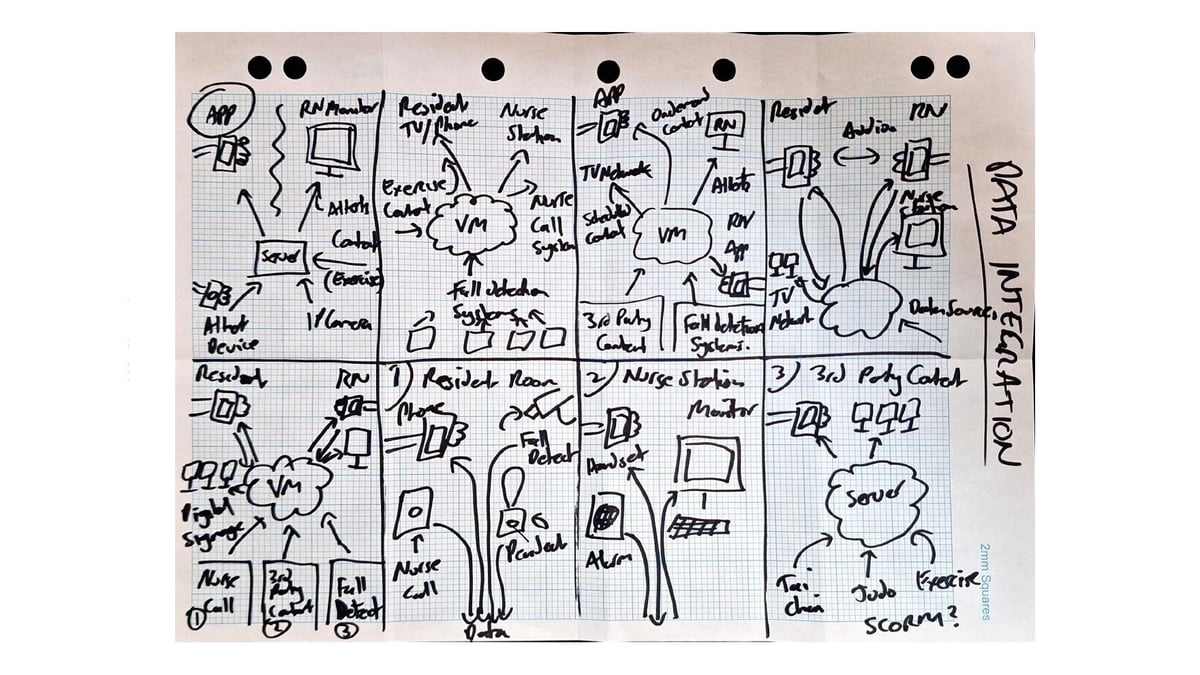 APP
RN Monitor
Alerts
Server
Content
(Exercise)
Alert
Device
IP Camera
Resident
TV/Phone
Nurse
Station
Exercise
Content
VM
Nurse
Call
System
Fall detection
Systems
APP
Content
RN
TV Network
Alerts
Scheduled
Content
VM
RN
App
3rd Party
Content
Fall detection
Systems.
Resident
RN
Audio
Nurse
Station
TV
Network
Data Sources
Resident
RN
VM
Digital
Signage
Nurse
Call
①
3rd
Party
Content
②
Fall
Detect
③
1) Resident Room
Phone
Fall
Detect
Nurse
Call
Pendant
Data
2) Nurse Station
Monitor
Handset
Alarm
3) 3rd Party Content
Server
Tai
Judo
Exercise
SCORM?
DATA INTEGRATION
2mm Squares